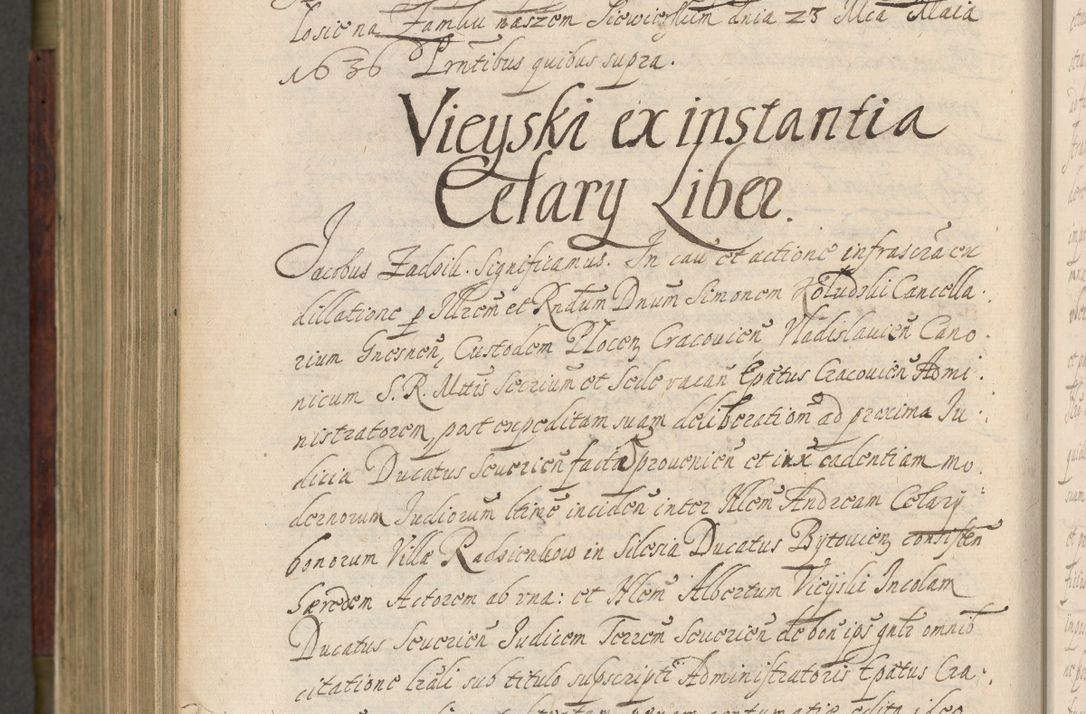 łosie na Zamku naszem Siewierskim dnia 23 Mca Maia
1636 Prñtibus quibus supra.
Vieyski ex instantia
Celary Liber.
Jacobus Zadzik. Significamus. In cau et actione infrascrã ex
dillatione p Illrem et Rndum Dnum Simonem Kołudzki Cancella.
rium Gnesneñ, Custodem Plocen, Cracovieñ Vladislavieñ Cano.
nicum S. R. Mttis Secrium et Sede vacañ Epñtus Cracovieñ Admi.
nistratorem, post expeditam suam deliberationẽ ad proxima Iu.
dicia Ducatus Severieñ facta provenieñ et in cadentiam mo.
dernorum Iudiciorum incideñ inter Illem Andream Celary
bonorum Villæ Radzienkow in Silesia Ducatus Bytovien, consisteñ
hæredem Actorem ab vna: et Illem Albertum Vieyski Incolam
Ducatus Severieñ Iudicem Terrem Severieñ de bon ips gnlr omnib
citatione lrali sub titulo subscripti Administratoris Epatus Cra.
edita ideo